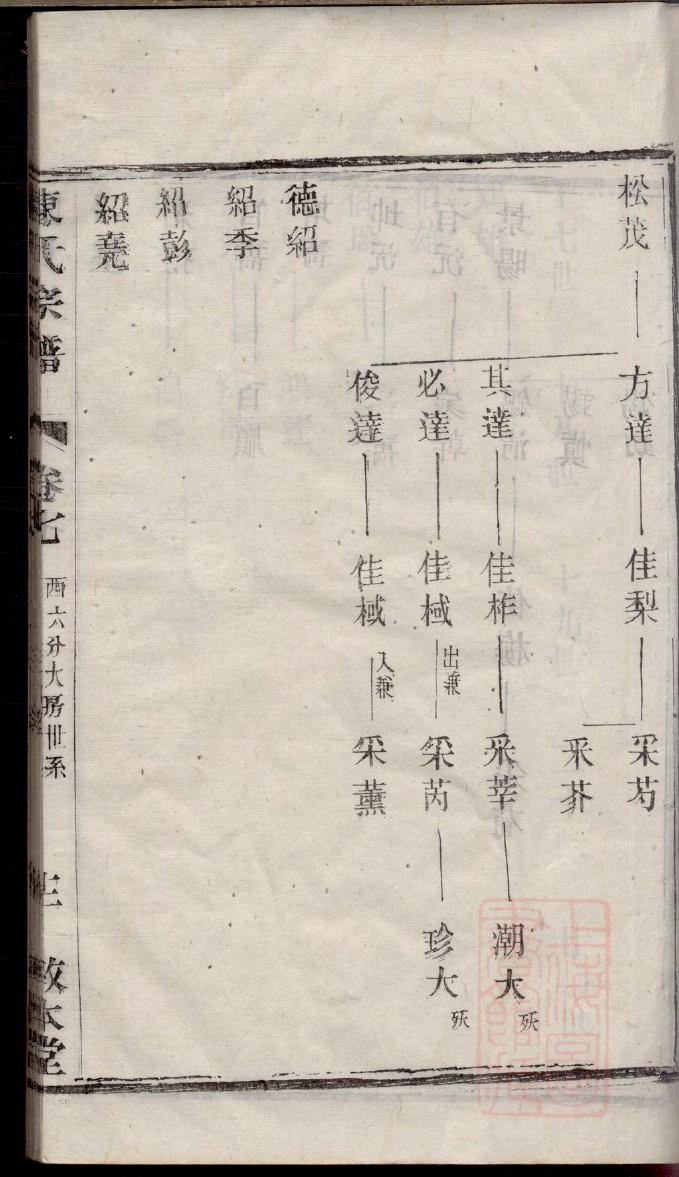 松茂
方達
佳梨
采芍
采芥
其達
佳柞
采莘
潮大
殀
必達
佳棫
出兼
采芮
珍大
殀
俊達
佳棫
入兼
采薰
德紹
紹季
紹彭
紹堯
陳氏宗譜
卷七
西六分大房世系
敦本堂